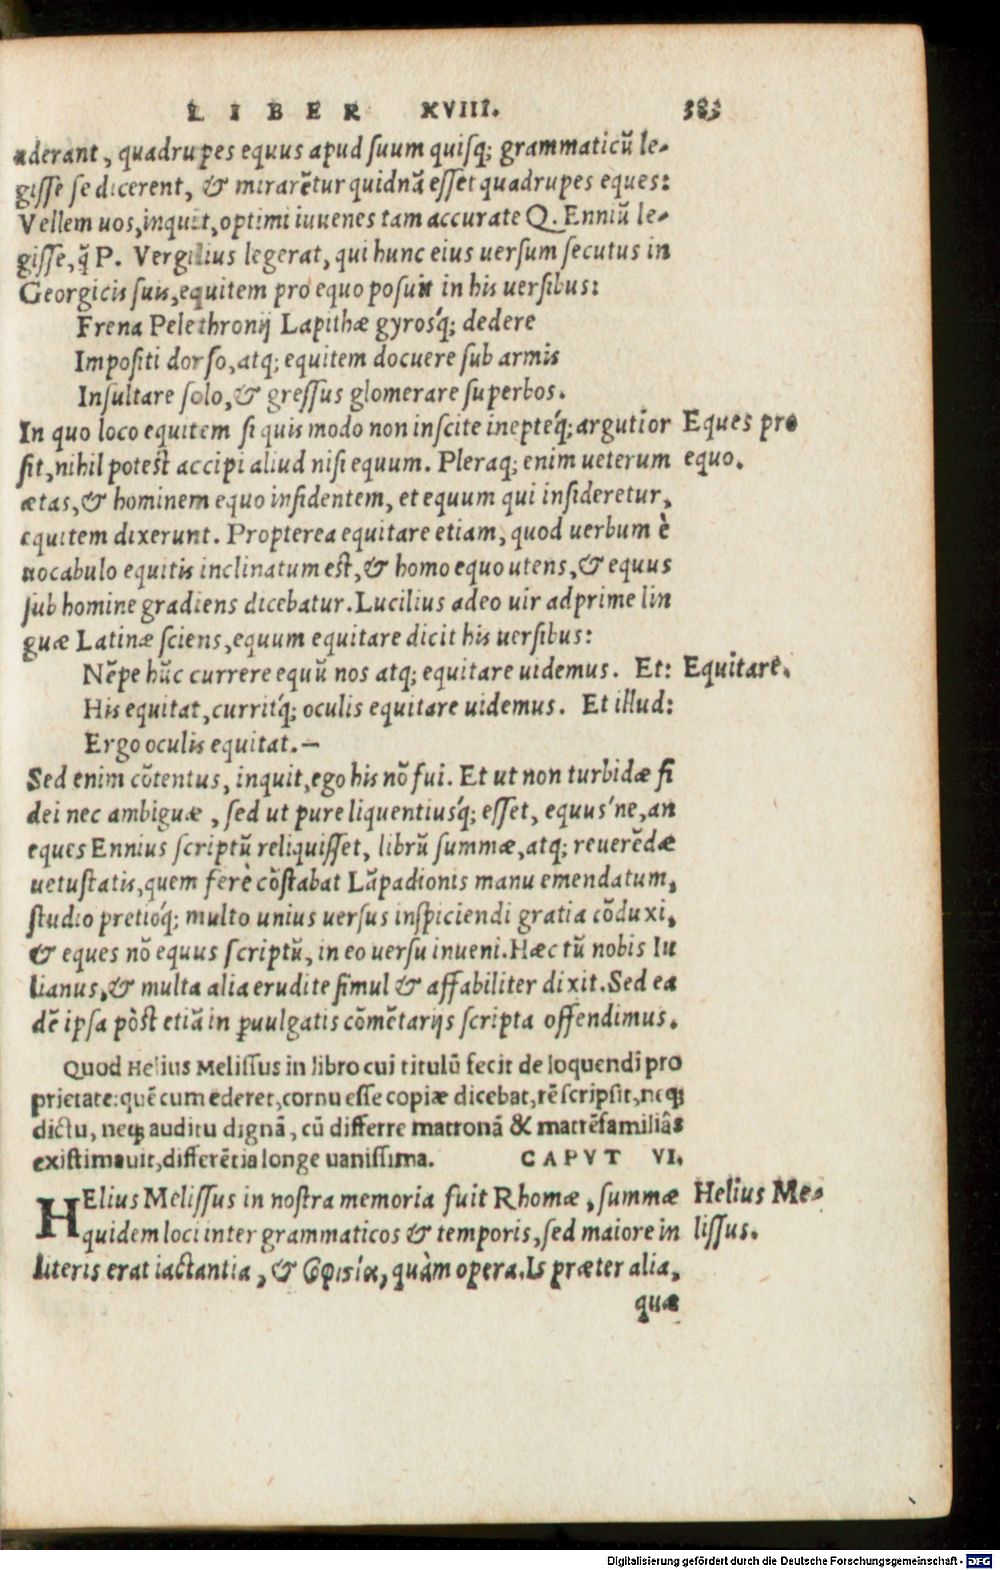 LIBER XVIII. 383
aderant, quadrupes equus apud suum quisq; grammaticũ le-
gisse se dicerent, & mirarẽtur quidnã esset quadrupes eques:
Vellem uos, inquit, optimi iuuenes tam accurate Q. Enniũ le-
gisse, q̃ P. Vergilius legerat, qui hunc eius uersum secutus in
Georgicis suis, equitem pro equo posuit in his uersibus:
Frena Pelethronij Lapithæ gyrosq́; dedere
Impositi dorso, atq; equitem docuere sub armis
Insultare solo, & gressus glomerare superbos.
In quo loco equitem si quis modo non inscite inepteq́; argutior Eques pro
sit, nihil potest accipi aliud nisi equum. Pleraq; enim ueterum equo.
ætas, & hominem equo insidentem, et equum qui insideretur,
equitem dixerunt. Propterea equitare etiam, quod uerbum è
uocabulo equitis inclinatum est, & homo equo utens, & equus
sub homine gradiens dicebatur. Lucilius adeo uir adprime lin
guæ Latinæ sciens, equum equitare dicit his uersibus:
Nẽpe hũc currere equũ nos atq; equitare uidemus. Et: Equitare.
His equitat, curritq́; oculis equitare uidemus. Et illud:
Ergo oculis equitat. —
Sed enim cõtentus, inquit, ego his nõ fui. Et ut non turbidæ fi
dei nec ambiguæ, sed ut pure liquentiusq́; esset, equus'ne, an
eques Ennius scriptũ reliquisset, librũ summæ, atq; reuerẽdæ
uetustatis, quem ferè cõstabat Lãpadionis manu emendatum,
studio pretioq́; multo unius uersus inspiciendi gratia cõduxi,
& eques nõ equus scriptũ, in eo uersu inueni. Hæc tũ nobis Iu
lianus, & multa alia erudite simul & affabiliter dixit. Sed ea
dẽ ipsa pòst etiã in ꝑuulgatis cõmẽtarijs scripta offendimus.
Quod Helius Melissus in libro cui titulũ fecit de loquendi pro
prietate: quẽ cum ederet, cornu esse copiæ dicebat, rẽ scripsit, neq;
dictu, neq; auditu dignã, cũ differre matronã & matrẽfamiliâs
existimauit, differẽtia longe uanissima. CAPVT VI.
HElius Melissus in nostra memoria fuit Rhomæ, summæ Helius Me-
quidem loci inter grammaticos & temporis, sed maiore in lissus.
literis erat iactantia, & σοφισία, quàm opera. Is præter alia,
quæ
Digitalisierung gefördert durch die Deutsche Forschungsgemeinschaft - DFG